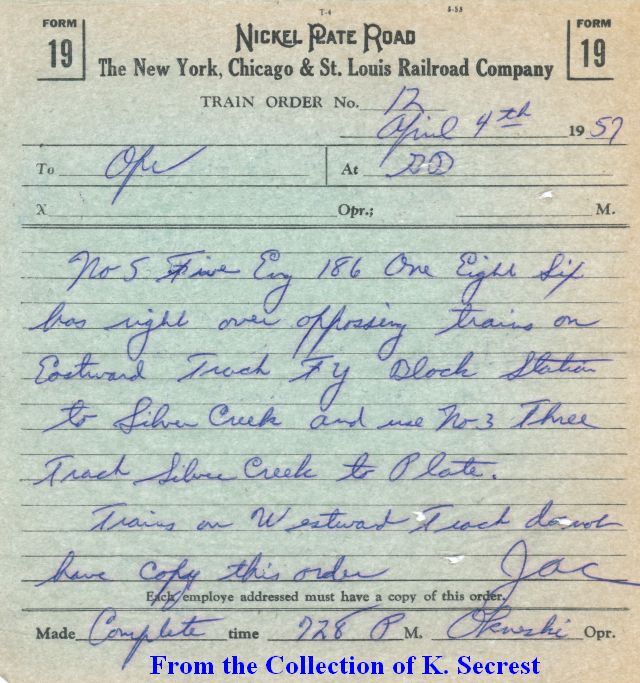 T-4 5-55
FORM 19
NICKEL PLATE ROAD
FORM 19
The New York, Chicago & St. Louis Railroad Company
TRAIN ORDER No. 12
April 4th 1957
To Opr At DD
X Opr.; M.
No 5 Five Eng 186 One Eight Six
has right over oppossing trains on
Eastward Track FY Block Station
to Silver Creek and use No. 3 Three
Track Silver Creek to Plate.
Trains on Westward Track do not
have copy this order JAC
Each employe addressed must have a copy of this order.
Made Complete time 728 P M. Opr.
From the Collection of K. Secrest